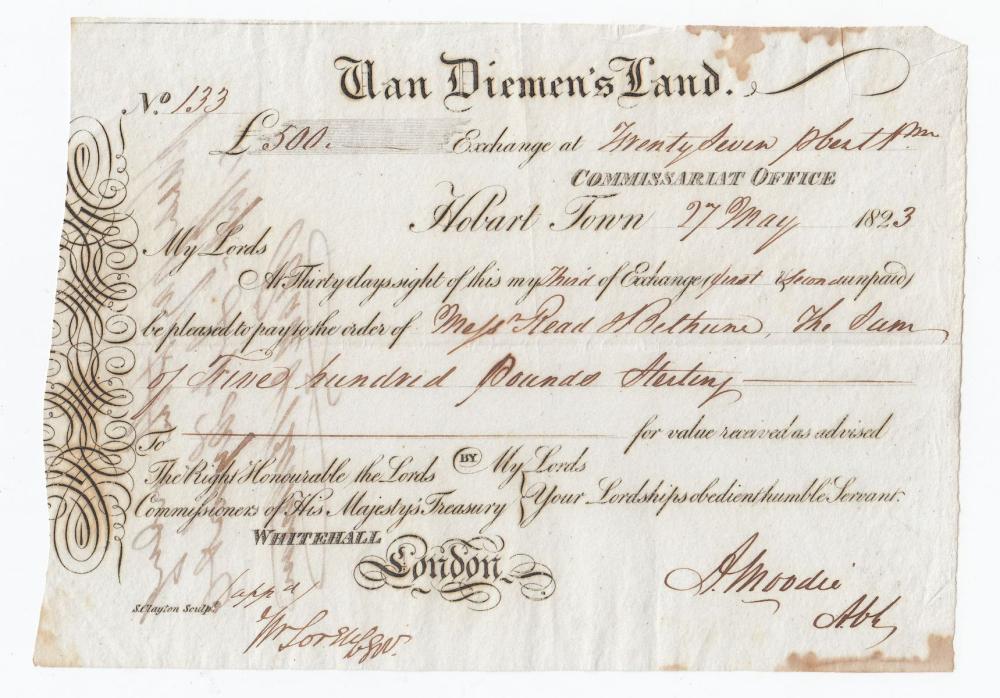 Van Diemen's Land.
No. 133
£500. Exchange at Twenty Seven
COMMISSARIAT OFFICE
Hobart Town 27 May 1823
My Lords
At Thirty days sight of this my Third of Exchange (first & Second unpaid)
be pleased to pay to the order of Messrs Read & Bethune, The Sum
of Five hundred Pounds Sterling
for value received as advised
To
The Right Honourable the Lords BY My Lords
Commissioners of His Majesty's Treasury Your Lordships obedient humble Servant
WHITEHALL
London
A. Moodie
S. Clayton Sculpt. (appd)
Wm Sorell